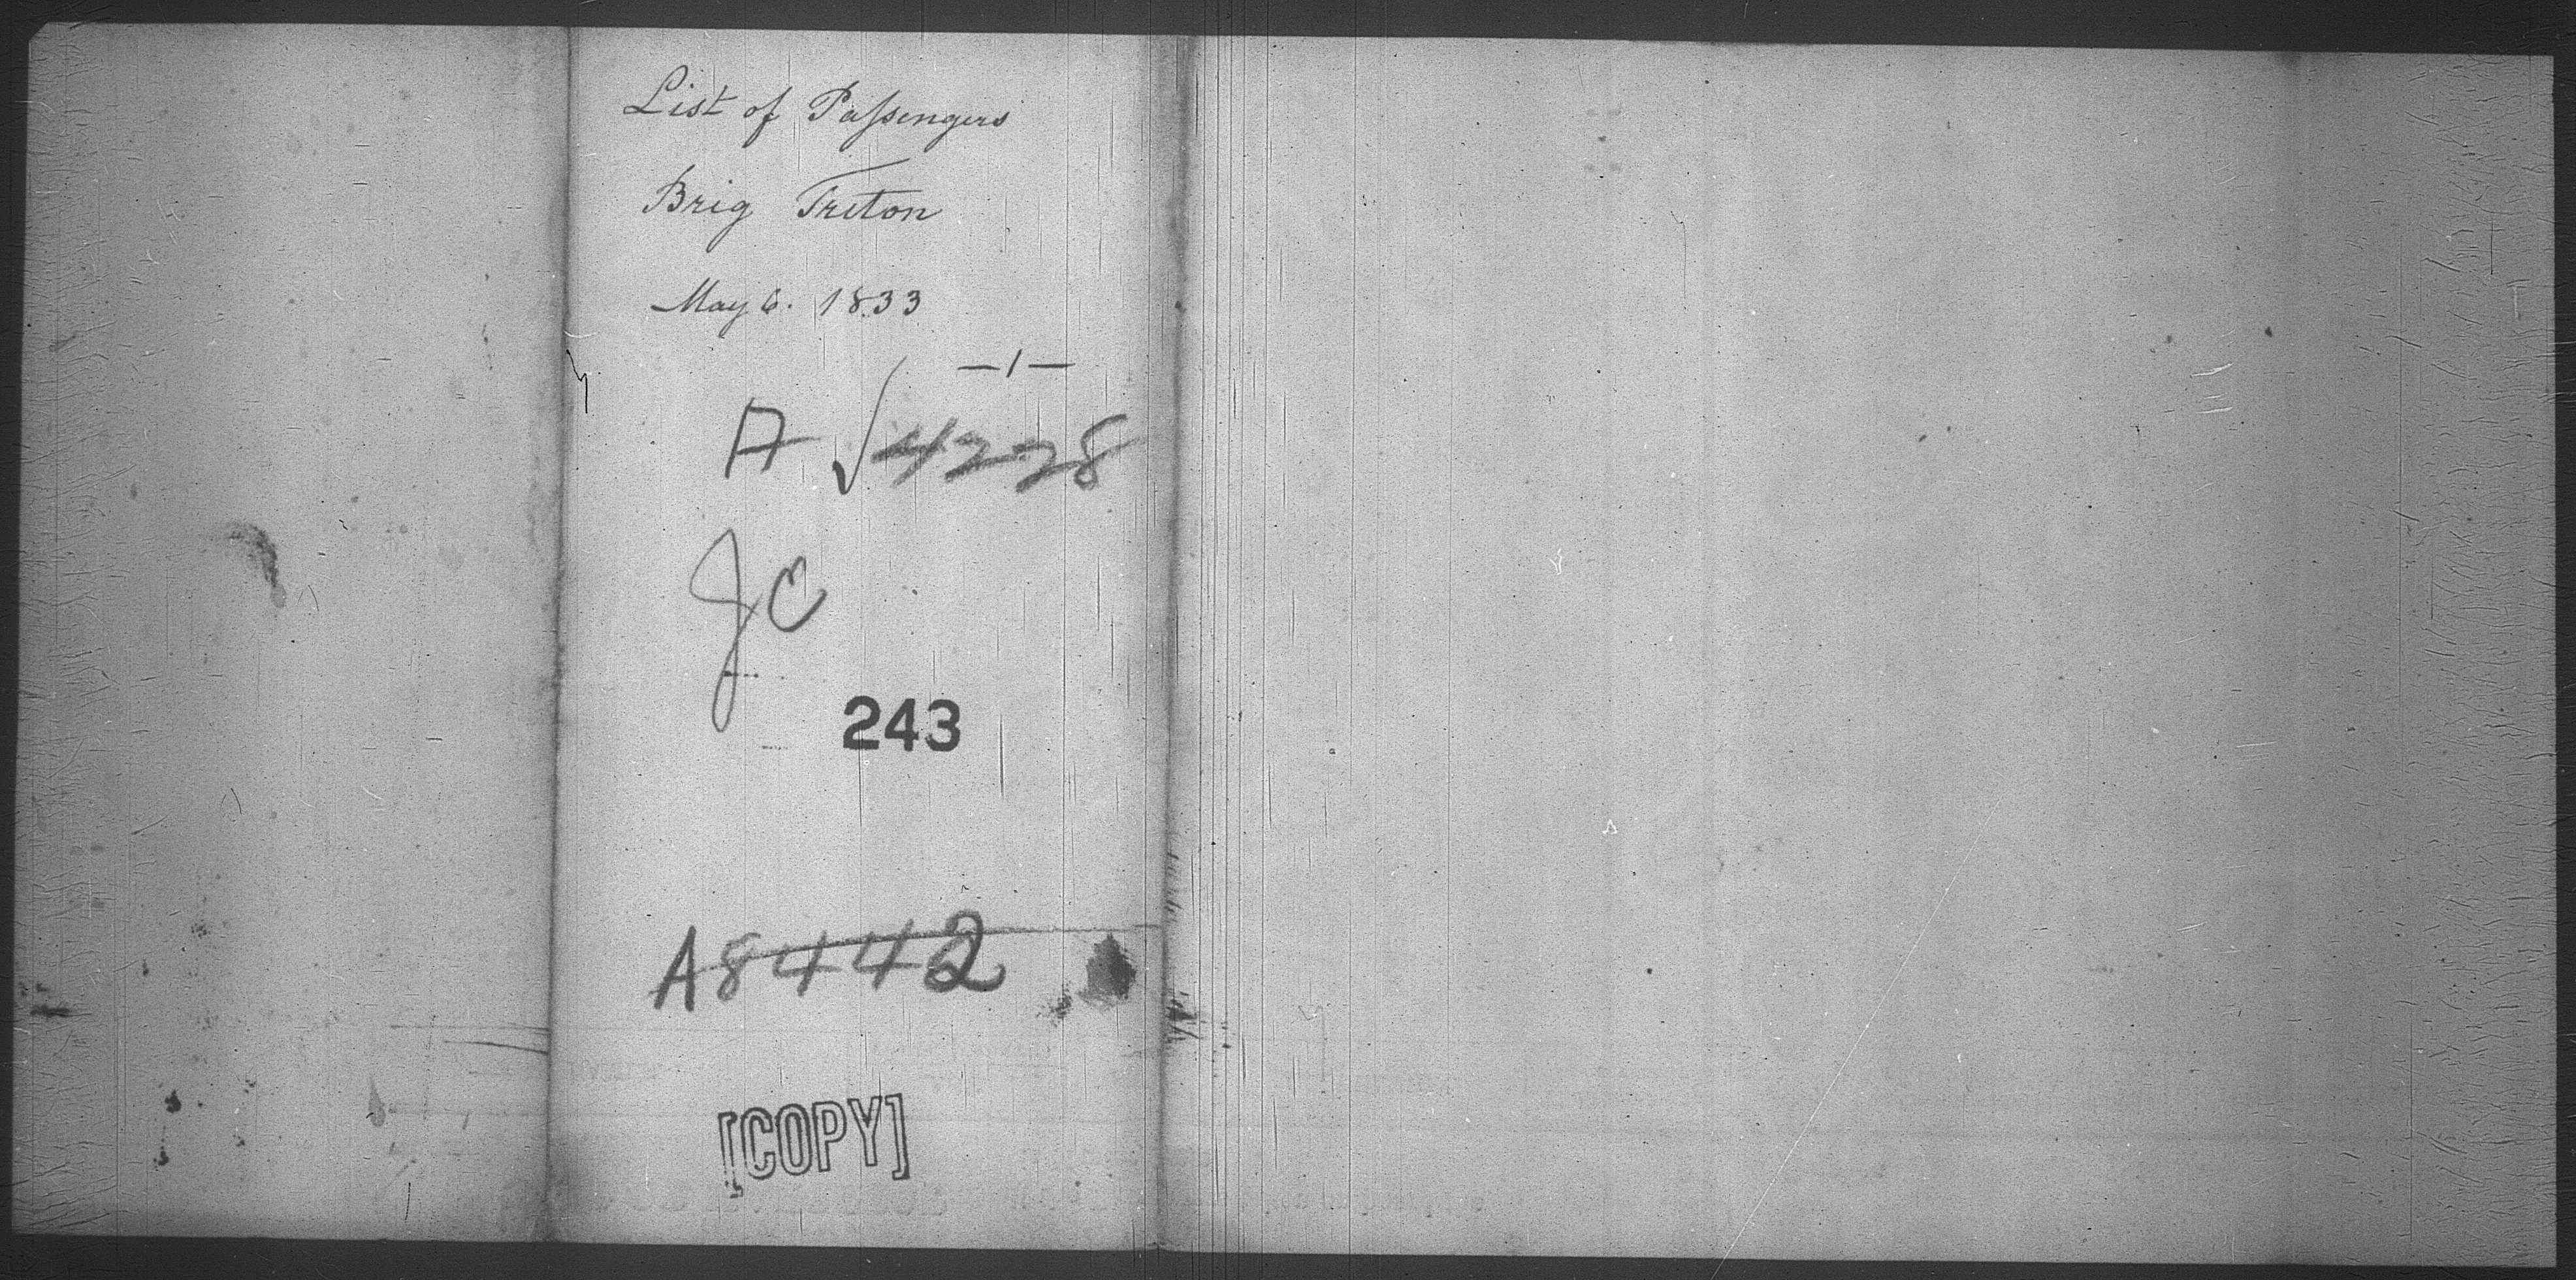 List of Passengers
Brig Triton
May 6. 1833
—1—
A √ 4228
JC
243
A8442
[COPY]